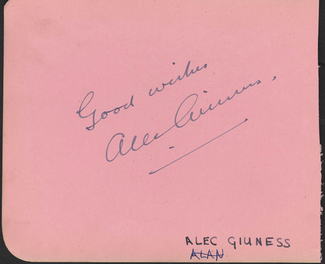 Good wishes
Alec Guinness.
ALEC GIUNESS
ALAN